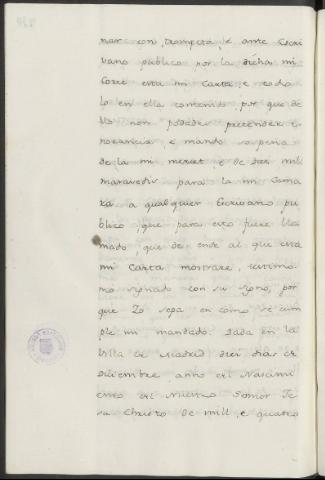 nar con trompeta, e ante Escri
vano publico por la dicha mi
Corte esta mi Carta, e todo
lo en ella contenido, por que de
llo non podades pretender ig
norancia, e mando so pena
de la mi merced e de diez mil
maravedis para la mi Cama
ra a qualquier Escrivano pu
blico, que para esto fuere lla
mado, que de ende al que esta
mi Carta mostrare, testimo
nio signado con su signo, por
que Yo sepa en como se cum
ple mi mandado. Dada en la
Villa de Madrid diez dias de
Diciembre, anno del Nascimi
ento del Nuestro Sennor Je
su Christo de mill, e quatro